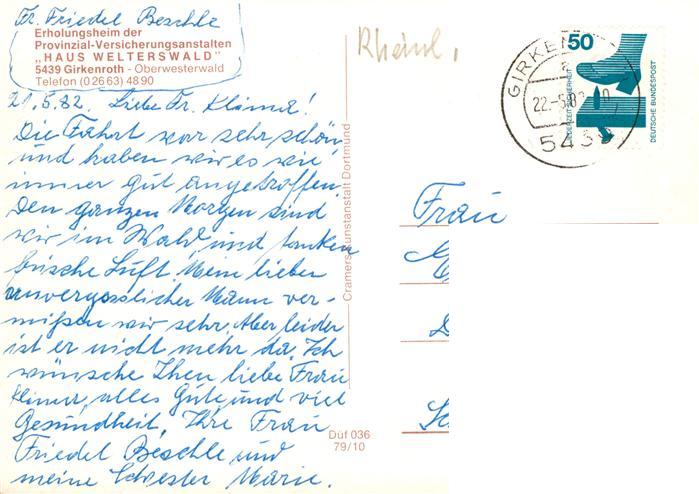 Fr. Friedel Beschle
Erholungsheim der
Provinzial-Versicherungsanstalten
„HAUS WELTERSWALD"
5439 Girkenroth - Oberwesterwald
Telefon (0 26 63) 48 90
21.5.82. Liebe Fr. Klimer!
Die Fahrt war sehr schön
und haben wir es wie
immer gut angetroffen.
Den ganzen Morgen sind
wir im Wald, und tanken
frische Luft. Mein lieber
unvergesslicher Mann ver-
mißen wir sehr. Aber leider
ist er nicht mehr da. Ich
wünsche Ihen liebe Frau
Klimer, alles Gute und viel
Gesundheit, Ihre Frau
Friedel Beschle und
meine Schwester Marie.
Cramers Kunstanstalt Dortmund
Düf 036
79/10
Rheinl.
GIRKEN
22.-5.82
543
50
JEDERZEIT SICHERHEIT
DEUTSCHE BUNDESPOST
Frau